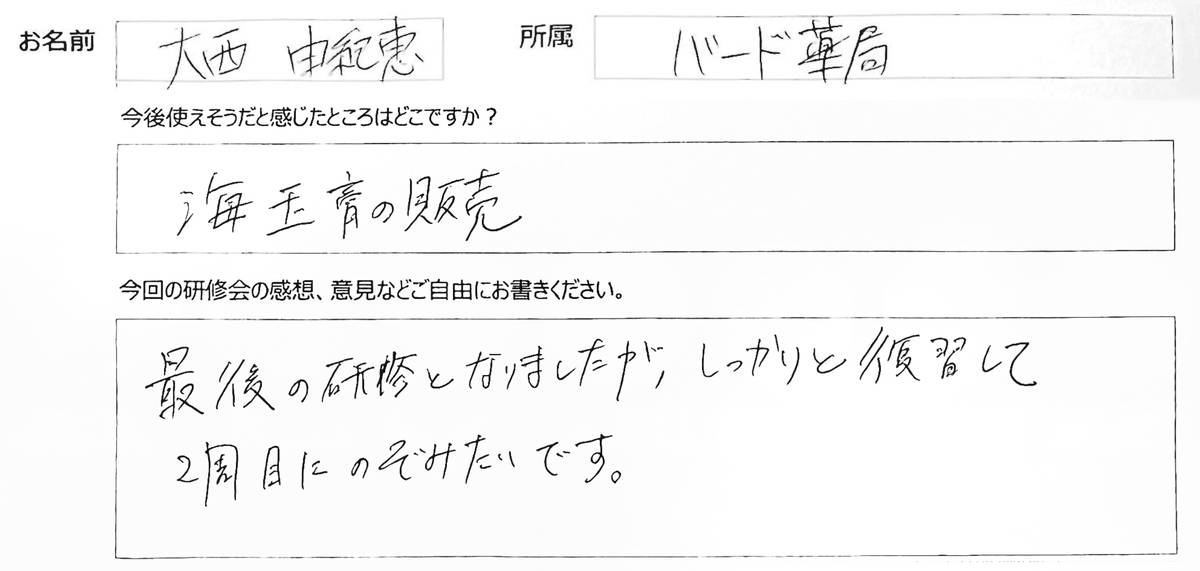 お名前 大西 由紀恵 所属 バード薬局
今後使えそうだと感じたところはどこですか？
海玉膏の販売
今回の研修会の感想、意見などご自由にお書きください。
最後の研修となりましたが、しっかりと復習して
2周目にのぞみたいです。